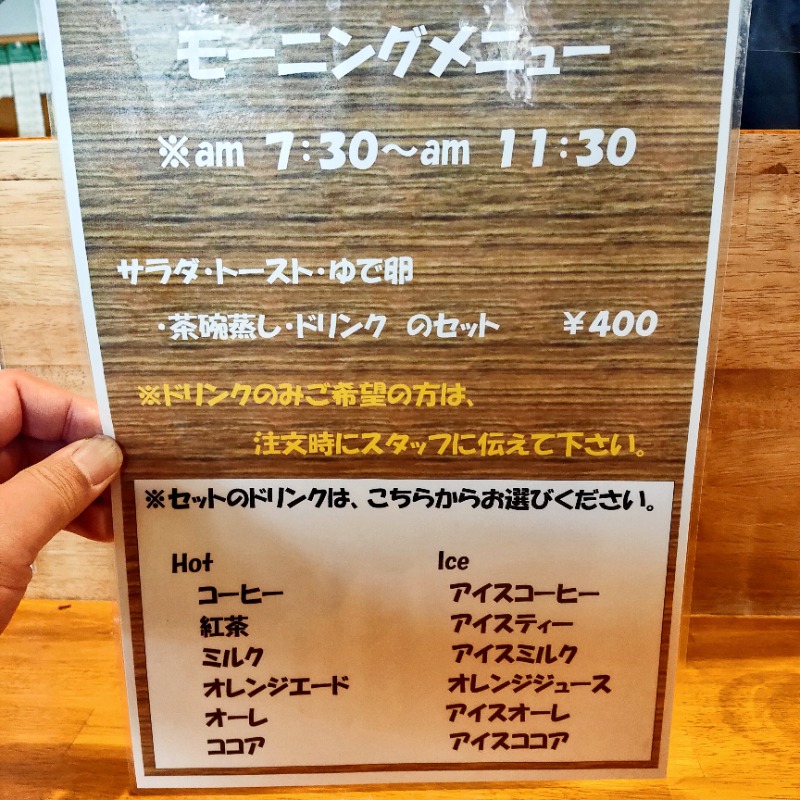 モーニングメニュー
※am 7:30～am 11:30
サラダ・トースト・ゆで卵
・茶碗蒸し・ドリンク のセット ￥400
※ドリンクのみご希望の方は、
注文時にスタッフに伝えて下さい。
※セットのドリンクは、こちらからお選びください。
Hot
コーヒー
紅茶
ミルク
オレンジエード
オーレ
ココア
Ice
アイスコーヒー
アイスティー
アイスミルク
オレンジジュース
アイスオーレ
アイスココア